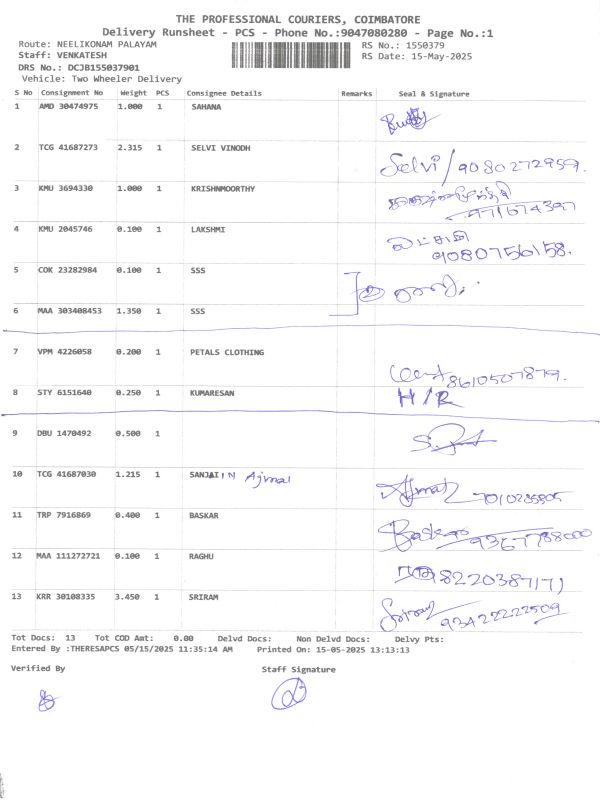 THE PROFESSIONAL COURIERS, COIMBATORE
Delivery Runsheet - PCS - Phone No.:9047080280 - Page No.:1
Route: NEELIKONAM PALAYAM RS No.: 1550379
Staff: VENKATESH RS Date: 15-May-2025
DRS No.: DCJB155037901
Vehicle: Two Wheeler Delivery
S No Consignment No Weight PCS Consignee Details Remarks Seal & Signature
1 AMD 30474975 1.000 1 SAHANA
2 TCG 41687273 2.315 1 SELVI VINODH Selvi / 9080272959.
3 KMU 3694330 1.000 1 KRISHNMOORTHY
4 KMU 2045746 0.100 1 LAKSHMI லட்சுமி
9080756158.
5 COK 23282984 0.100 1 SSS
6 MAA 303408453 1.350 1 SSS
7 VPM 4226058 0.200 1 PETALS CLOTHING 8610507879.
8 STY 6151640 0.250 1 KUMARESAN H/R
9 DBU 1470492 0.500 1
10 TCG 41687030 1.215 1 SANJAIN Ajmal Ajmal
11 TRP 7916869 0.400 1 BASKAR Baskar 9367788000
12 MAA 111272721 0.100 1 RAGHU 8220387171
13 KRR 30108335 3.450 1 SRIRAM Sriram
Tot Docs: 13 Tot COD Amt: 0.00 Delvd Docs: Non Delvd Docs: Delvy Pts:
Entered By :THERESAPCS 05/15/2025 11:35:14 AM Printed On: 15-05-2025 13:13:13
Verified By Staff Signature